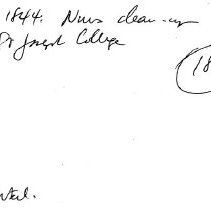 1844. Nuns clean-up
St Joseph College
18